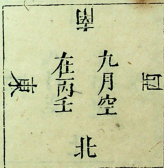 南
西
九月空
在丙壬
東
北